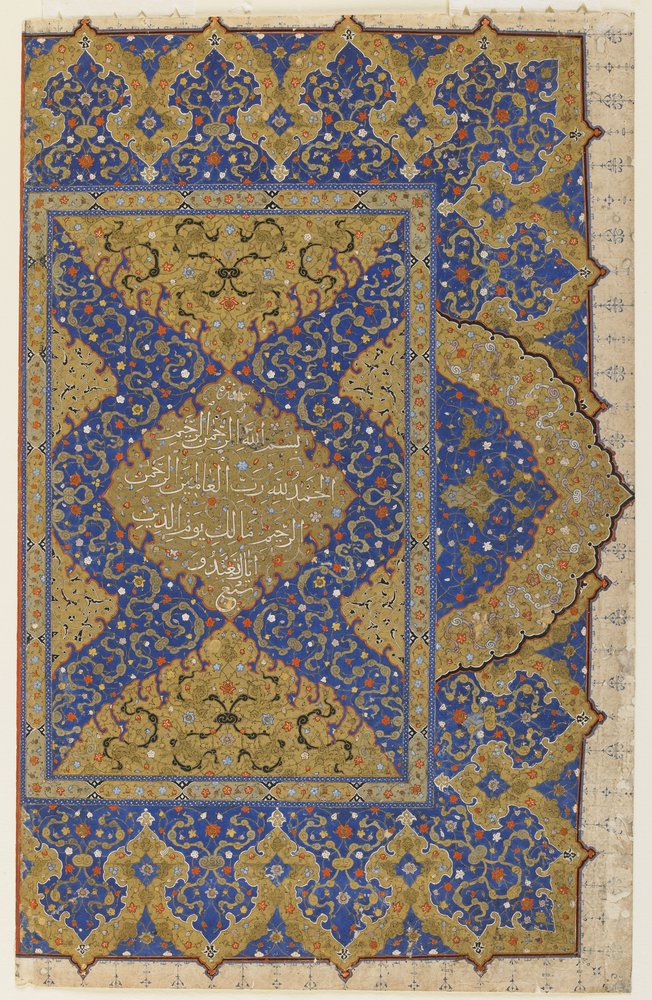 بسم الله الرحمن الرحيم
الحمد لله رب العالمين الرحمن
الرحيم مالك يوم الدين
اياك نعبد و